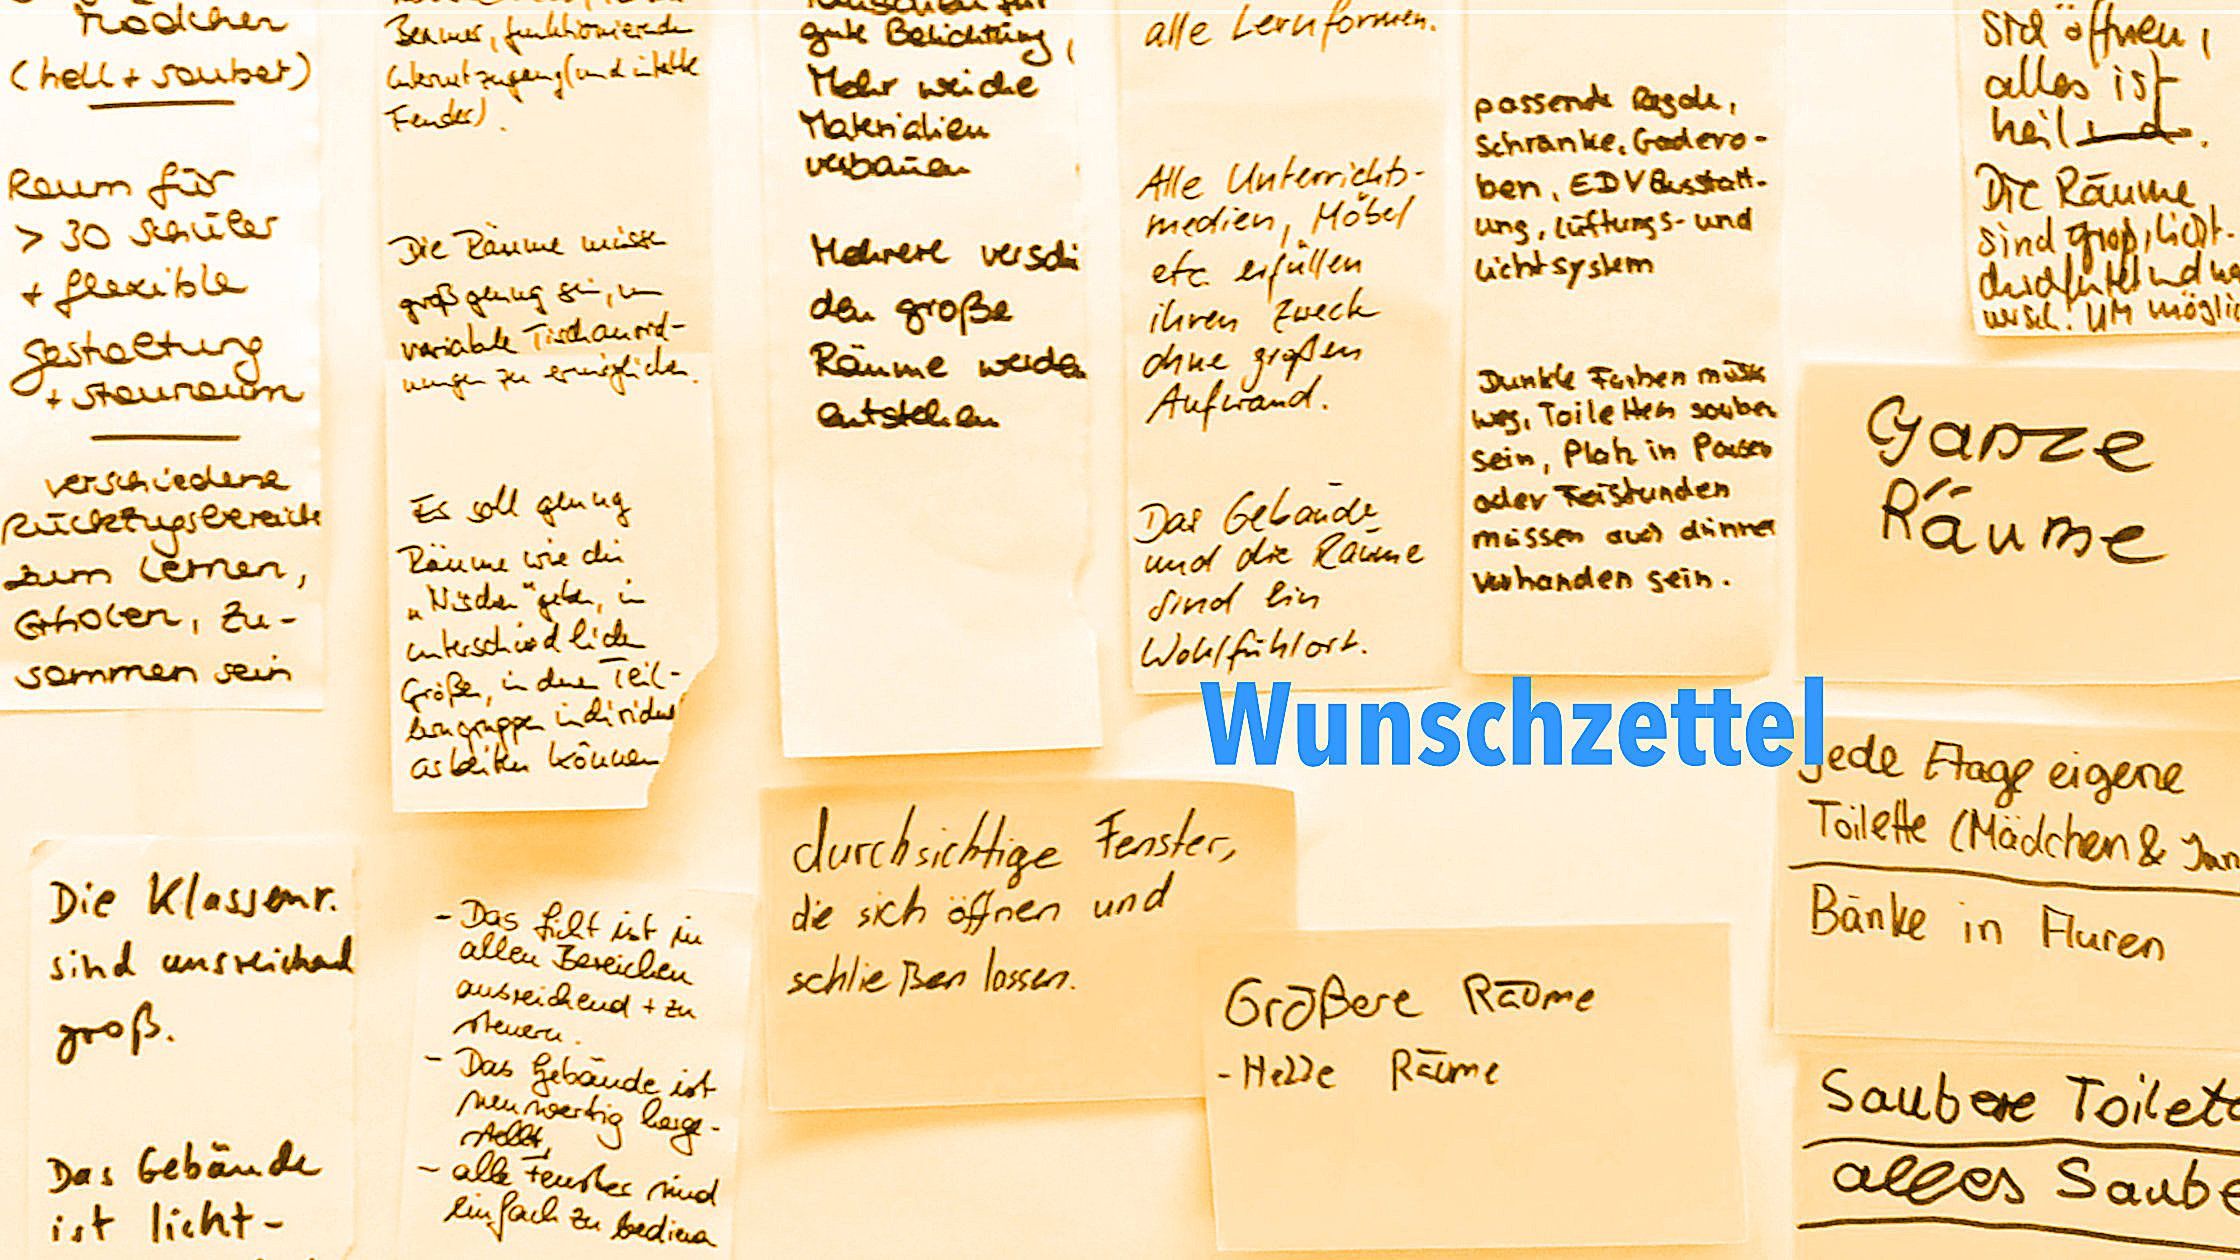 Mädchen
(hell + sauber)
Raum für
> 30 Schüler
+ flexible
gestaltung
+ stauraum
verschiedene
Rückzugsbereiche
zum Lernen,
Erholen, Zu-
sammen sein
Die Klassenr.
sind ausreichend
groß.
Das Gebäude
ist licht-
Beamer, funktionierende
Internetzugang (und intakte
Fenster).
Die Räume müssen
groß genug sein, um
variable Tischanord-
nungen zu ermöglichen.
Es soll genug
Räume wie die
„Nischen" geben, in
unterschiedlichen
Größen, in denen Teil-
lerngruppen individuell
arbeiten können
- Das Licht ist in
allen Bereichen
ausreichend + zu
steuern.
- Das Gebäude ist
neuwertig herge-
stellt,
- alle Fenster sind
einfach zu bedienen
gute Belichtung,
Mehr weiche
Materialien
verbauen
Mehrere verschi
den große
Räume werden
entstehen
durchsichtige Fenster,
die sich öffnen und
schließen lassen.
alle Lernformen.
Alle Unterrichts-
medien, Möbel
etc erfüllen
ihren Zweck
ohne großen
Aufwand.
Das Gebäude
und die Räume
sind ein
Wohlfühlort.
Wunschzettel
Größere Räume
- Helle Räume
passende Regale,
schränke, Gadero-
ben, EDV Ausstatt-
ung, lüftungs- und
lichtsystem
Dunkle Farben müssen
weg, Toiletten sauber
sein, Platz in Pausen
oder Freistunden
müssen auch drinnen
vorhanden sein.
sich öffnen,
alles ist
heil
Die Räume
sind groß, licht-
durchflutet und
Ganze
Räume
jede Etage eigene
Toilette (Mädchen &
Bänke in Fluren
Saubere Toilette
alles Saube